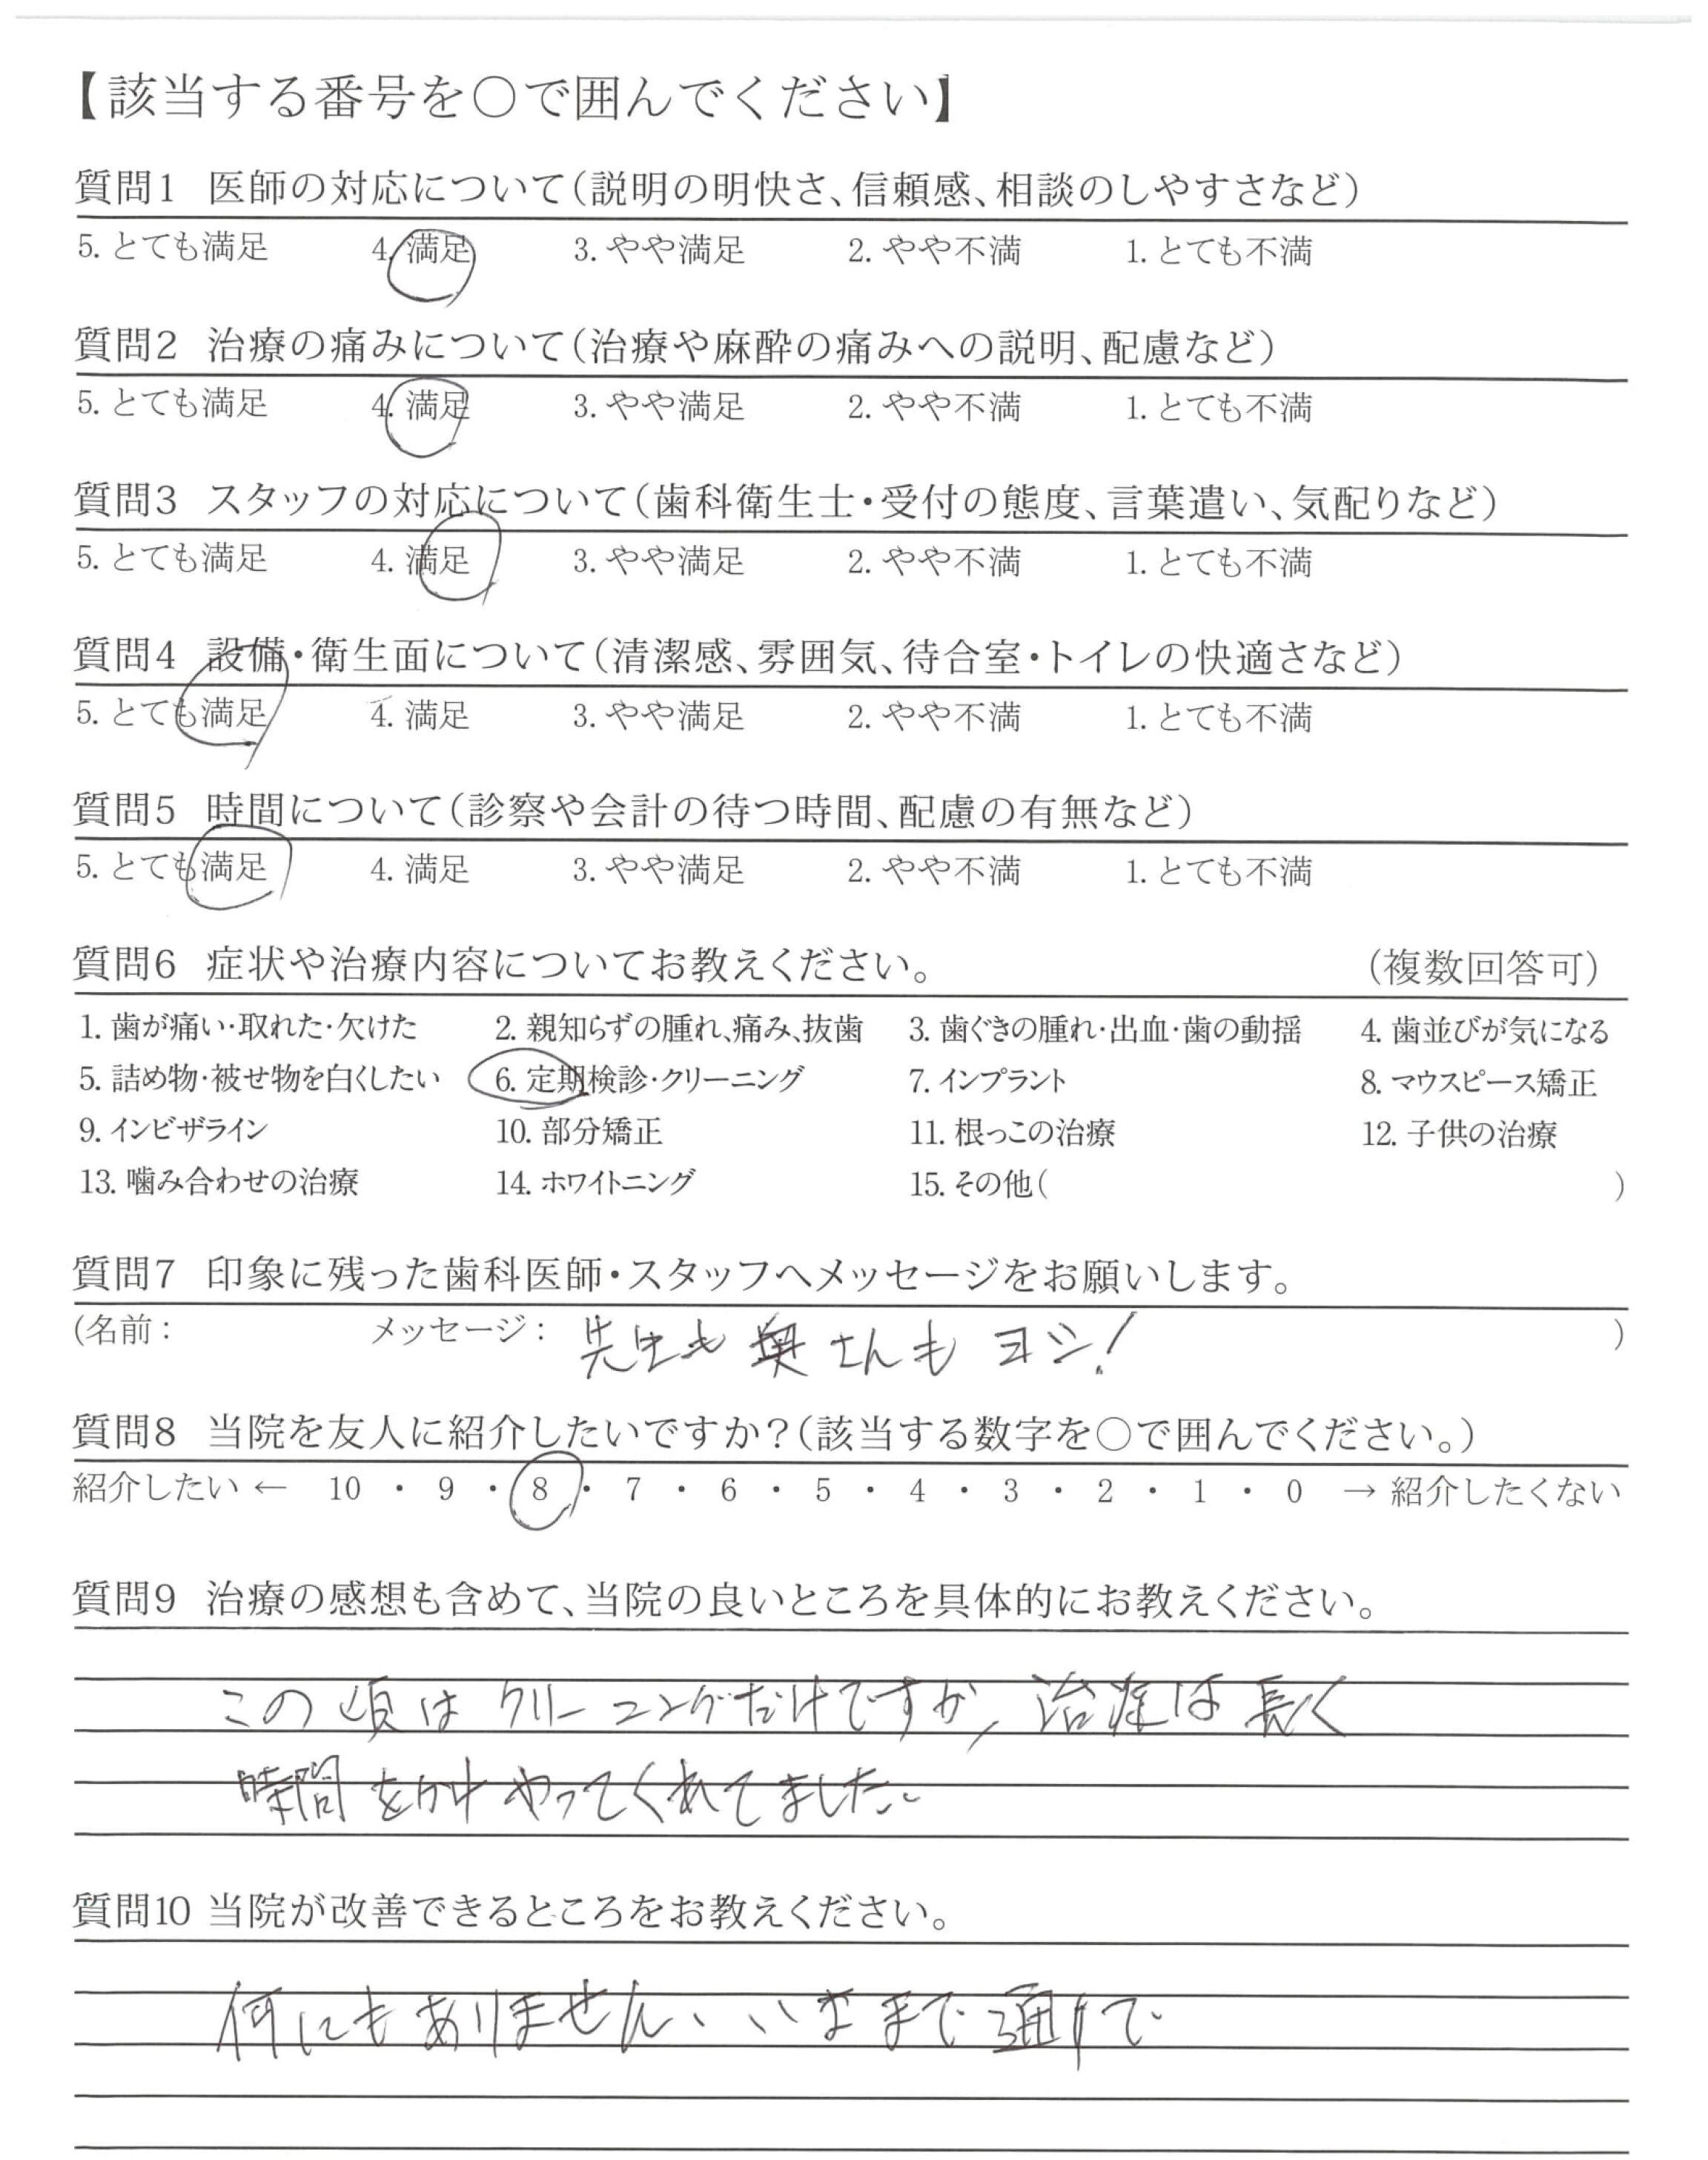 【該当する番号を○で囲んでください】
質問1 医師の対応について(説明の明快さ、信頼感、相談のしやすさなど)
5. とても満足 4. 満足 3. やや満足 2. やや不満 1. とても不満
質問2 治療の痛みについて(治療や麻酔の痛みへの説明、配慮など)
5. とても満足 4. 満足 3. やや満足 2. やや不満 1. とても不満
質問3 スタッフの対応について(歯科衛生士・受付の態度、言葉遣い、気配りなど)
5. とても満足 4. 満足 3. やや満足 2. やや不満 1. とても不満
質問4 設備・衛生面について(清潔感、雰囲気、待合室・トイレの快適さなど)
5. とても満足 4. 満足 3. やや満足 2. やや不満 1. とても不満
質問5 時間について(診察や会計の待つ時間、配慮の有無など)
5. とても満足 4. 満足 3. やや満足 2. やや不満 1. とても不満
質問6 症状や治療内容についてお教えください。 (複数回答可)
1. 歯が痛い・取れた・欠けた 2. 親知らずの腫れ、痛み、抜歯 3. 歯ぐきの腫れ・出血・歯の動揺 4. 歯並びが気になる
5. 詰め物・被せ物を白くしたい 6. 定期検診・クリーニング 7. インプラント 8. マウスピース矯正
9. インビザライン 10. 部分矯正 11. 根っこの治療 12. 子供の治療
13. 噛み合わせの治療 14. ホワイトニング 15. その他( )
質問7 印象に残った歯科医師・スタッフへメッセージをお願いします。
(名前: メッセージ: 先生も奥さんもヨシ! )
質問8 当院を友人に紹介したいですか?(該当する数字を○で囲んでください。)
紹介したい ← 10 ・ 9 ・ 8 ・ 7 ・ 6 ・ 5 ・ 4 ・ 3 ・ 2 ・ 1 ・ 0 → 紹介したくない
質問9 治療の感想も含めて、当院の良いところを具体的にお教えください。
この頃はクリーニングだけですが、治療は長く
時間をかけやってくれてました。
質問10 当院が改善できるところをお教えください。
何にもありません、いままで通りで